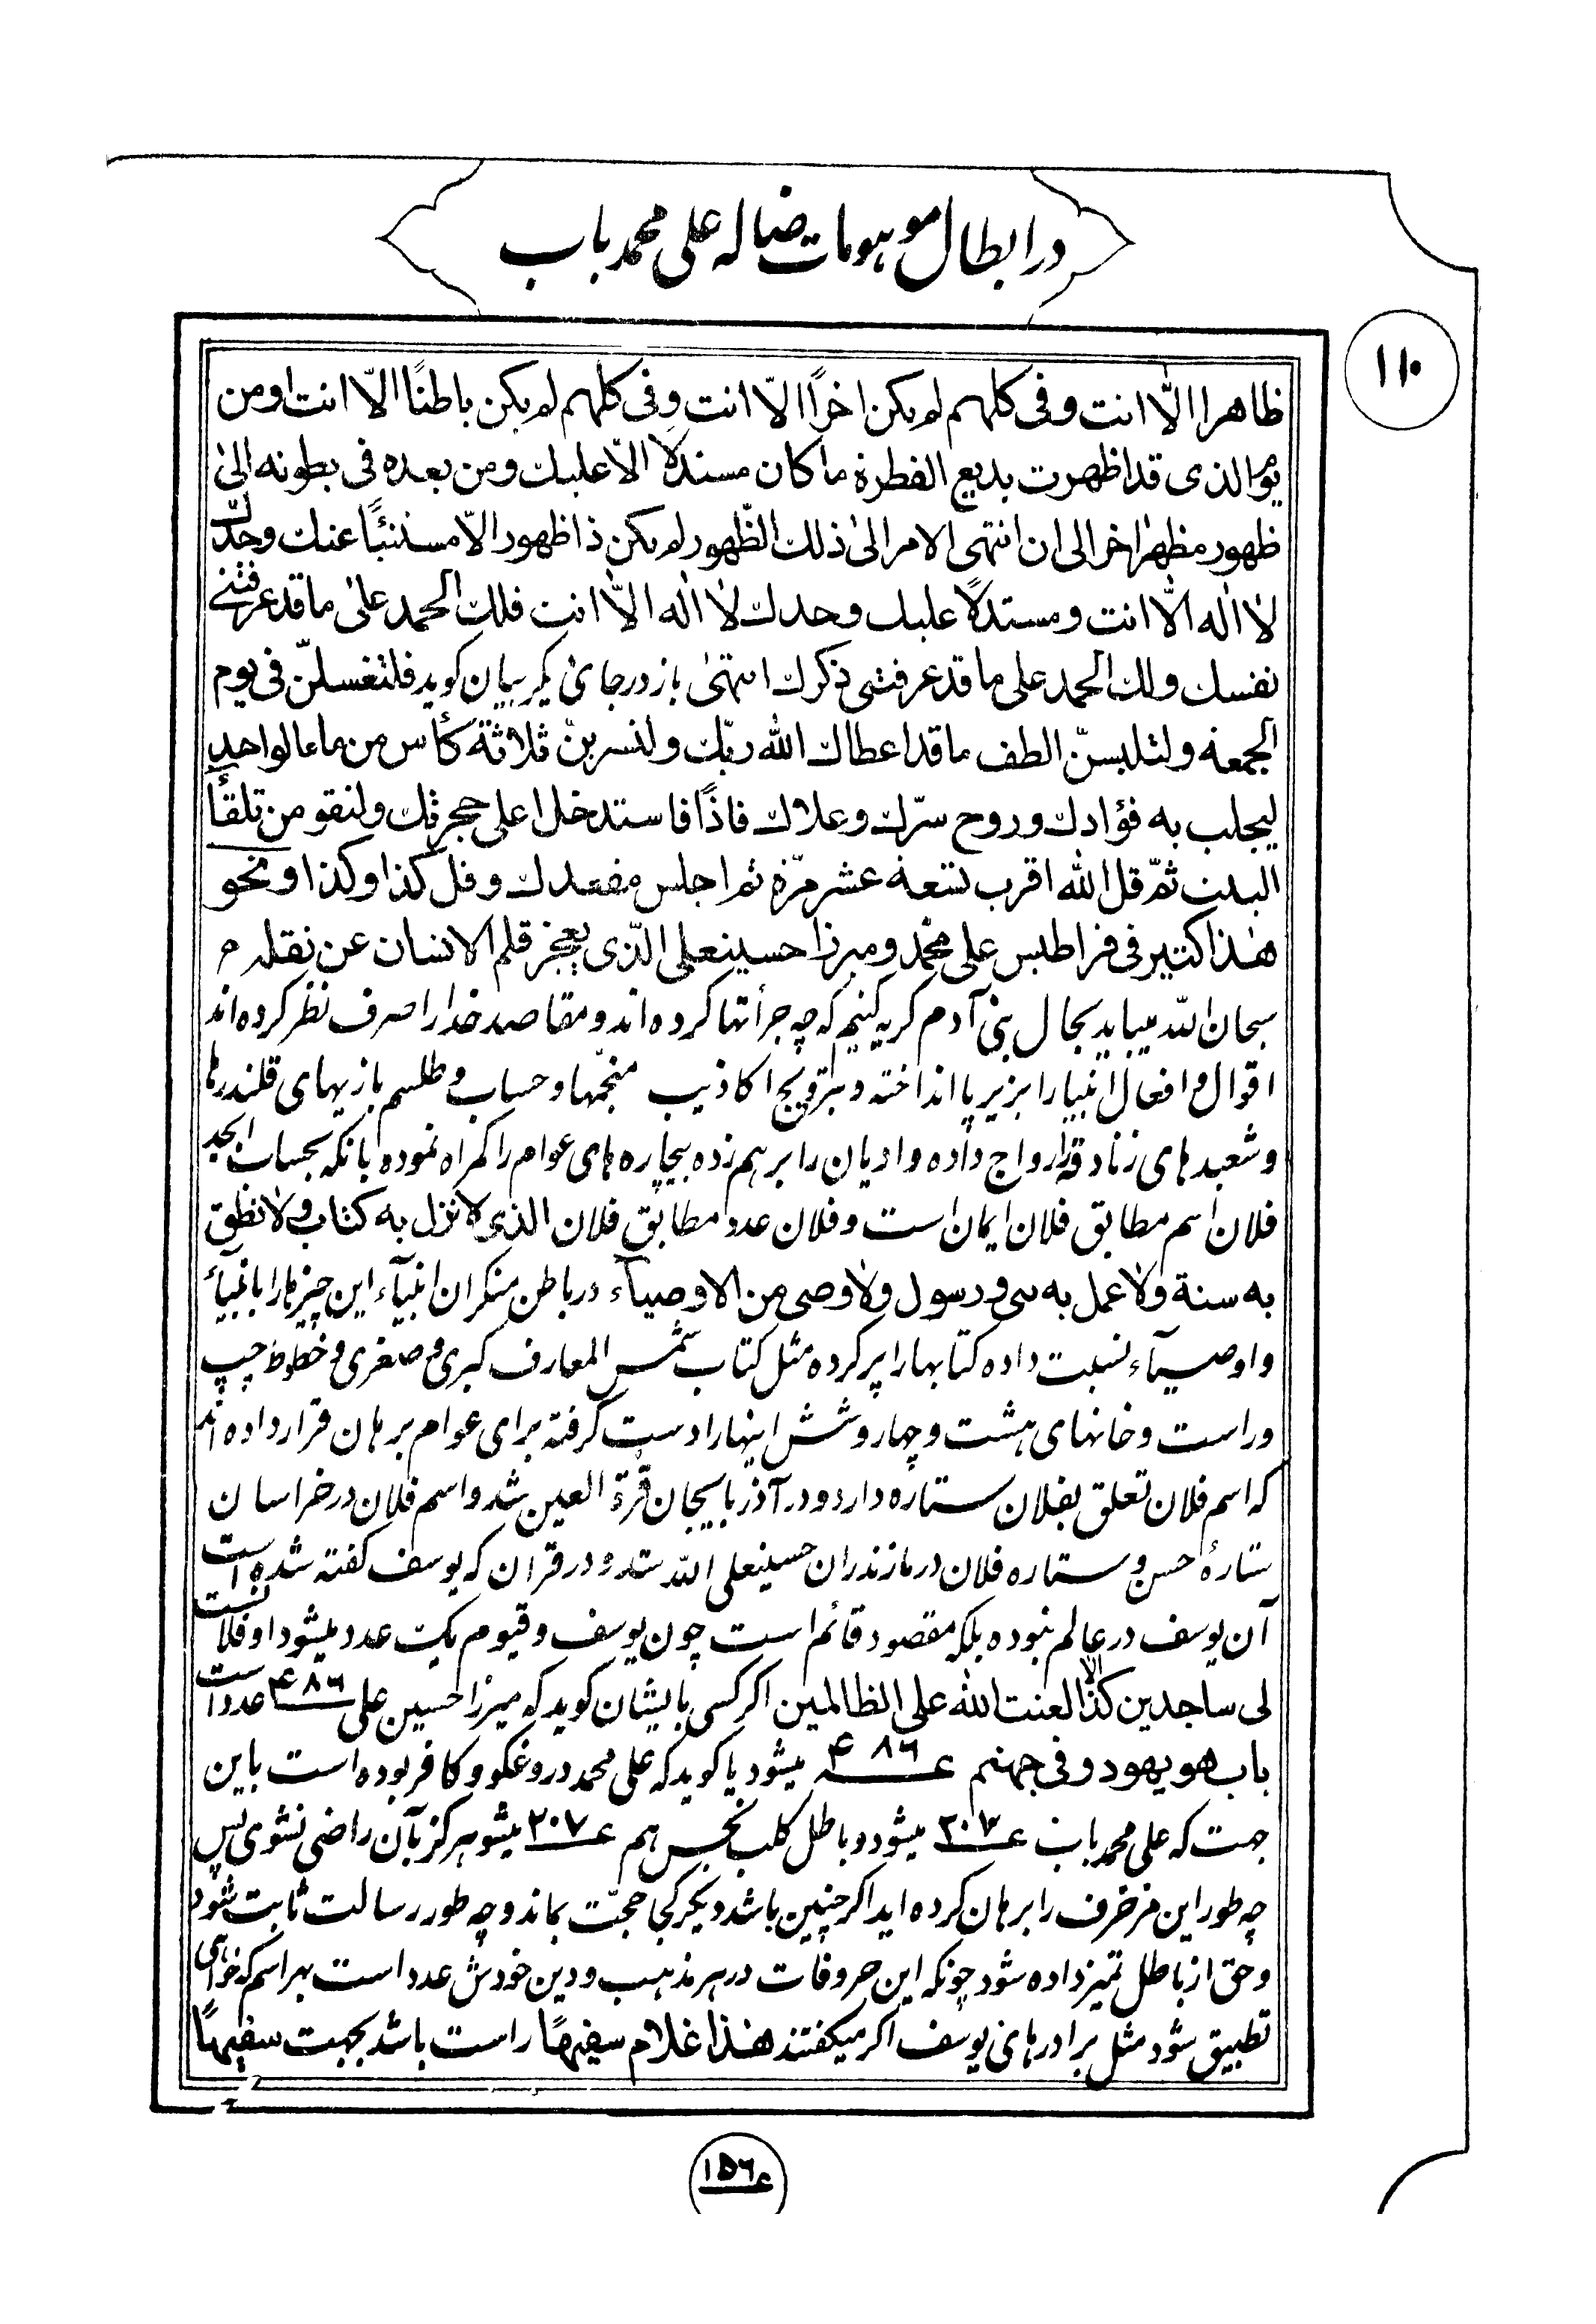 در ابطال موهومات ضاله علی محمد باب
۱۱۰
ظاهرا الّا انت و فی کلهم لم یکن اخراً الّا انت و فی کلهم لم یکن باطنًا الّا انت و من
یوم الذی قد اظهرت بدیع الفطرة ما کان مستدلا الّا علیك و من بعده فی بطونه الیٰ
ظهور مظهر اخر الی ان انتهی الامر الیٰ ذلك الظّهور لم یکن ذا ظهور الّا مستنبئًا عنك وحدك
لا اله الّا انت و مستدلًا علیك وحدك لا اله الّا انت فلك الحمد علیٰ ما قد عرفتنی
نفسك ولك الحمد علی ما قد عرفتنی ذکرك انتهیٰ باز در جای دیگر بیان کوید فلتغسلنّ فی یوم
الجمعه و لتلبسنّ الطف ما قد اعطاك الله ربّك و لتسربنّ ثلاثة کأس من ماء الواحد
لیجلب به فؤادك و روح سرّك و علاك فاذًا فاستدخل اعلی حجرتك و لتقومن تلقاً
البیت ثمّ قل الله اقرب تسعة عشر مرّة ثم اجلس مقعدك و قل کذا و کذا و نحو
هذا کثیر فی قراطیس علی محمّد و میرزا حسینعلی الّذی یعجز قلم الانسان عن نقله م
سبحان الله میباید بحال بنی آدم کریه کنیم که چه جرأتها کرده اند و مقاصد خدا را صرف نظر کرده اند
اقوال و افعال انبیا را بزیر پا انداخته و بترویج اکاذیب منجّمها و حساب و طلسم بازیهای قلندرها
و شعبدهای زنادقه را رواج داده و ادیان را برهم زده بیچاره های عوام را کمراه نموده بانکه بحساب ابجد
فلان اسم مطابق فلان ایمان است و فلان عدد مطابق فلان الذی لا نزل به کتاب و لا نطق
به سنة و لا عمل به نبی و رسول و لا وصی من الاوصیآء در باطن منکران انبیآء این چیزها را بانبیآء
و اوصیآء نسبت داده کتابها را پر کرده مثل کتاب شمس المعارف کبری و صغری و خطوط چپ
و راست و خانهای هشت و چهار و شش اینها را دست کرفته برای عوام برهان قرار داده اند
که اسم فلان تعلق بفلان ستاره دارد و در آذربایجان قرّة العین شد و اسم فلان در خراسان
ستارهٔ حسن و ستاره فلان در مازندران حسینعلی الله شد و در قران که یوسف کفته شده است
آن یوسف در عالم نبوده بلکه مقصود قائم است چون یوسف و قیوم یکت عدد میشود او فلا نیست
لی ساجدین کذا الا لعنت الله علی الظالمین اکر کسی بایشان کوید که میرزا حسین علی ۴۸۶ عدد است
باب هو یهود و فی جهنم ع ۴۸۶ میشود یا کوید که علی محمد دروغکو و کافر بوده است باین
جهت که علی محمد باب ع ۲۰۷ میشود و باطل کلب نجس هم ع ۲۰۷ میشو هرکز بآن راضی نشوی پس
چه طور این مزخرف را برهان کرده اید اکر چنین باشد دیکر کجا حجّت بماند و چه طور رسالت ثابت شود
و حق از باطل تمیز داده شود چونکه این حروفات در هر مذهب و دین خودش عدد است بهر اسم که خواهی
تطبیق شود مثل برادرهای یوسف اکر میکفتند هذا غلام سفیهًا راست باشد بجهت سفیهًا
۱۵۶ع